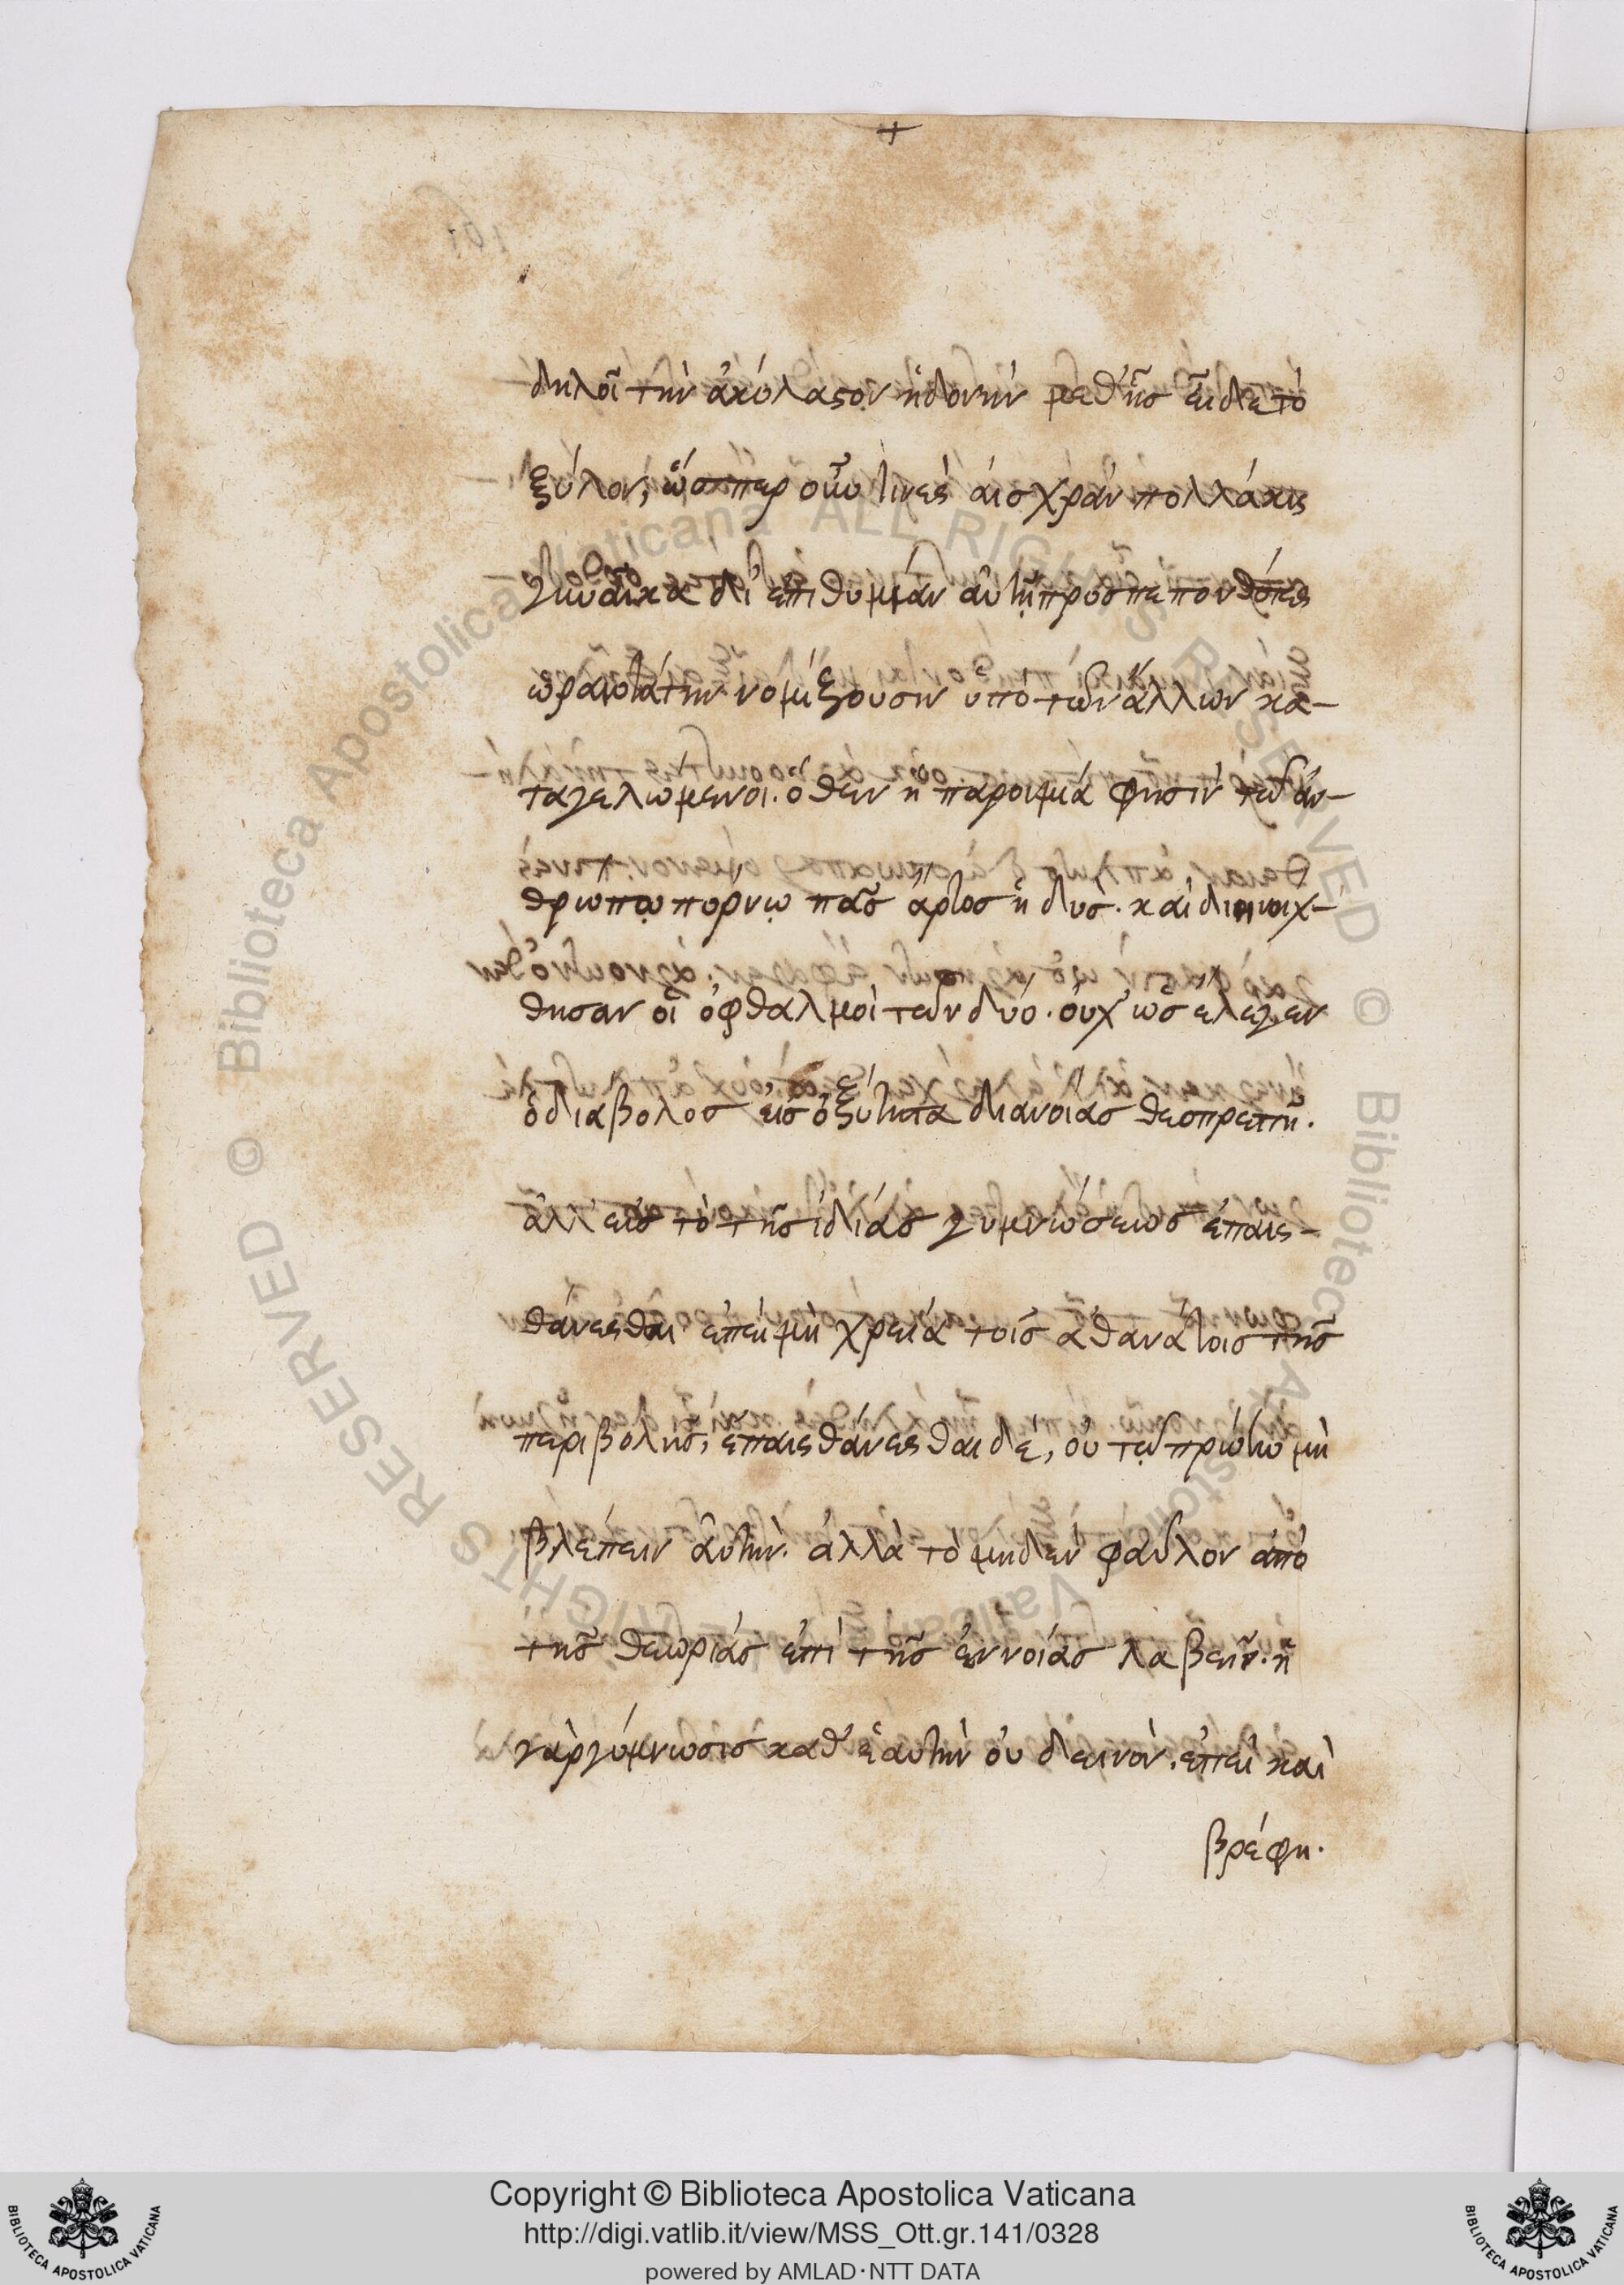 +
δηλοῖ τὴν ἀκόλαςον ἡδονὴν μεθ' ἧσ εἶδε τὸ
ξύλον, ὥσπερ οὖν τινὲς ἀισχρὰν πολλάκις
γυναῖκα δι' ἐπιθυμίαν ἀυτῇ προσπεπονθότες
ὡραιοτάτην νομίζουσιν ὑπὸ τῶν ἄλλων κα-
ταγελώμενοι. ὅθεν ἡ παροιμία φησὶν τῷ ἀν-
θρώπῳ πόρνῳ πᾶσ ἄρτοσ ἡδύσ. καὶ διηνοίχ-
θησαν οἱ ὀφθαλμοὶ τῶν δύο. ὀυχ' ὡσ ἔλεγεν
ὁ διάβολοσ εἰσ ὀξύτητα διανοίασ θεοπρεπῆ.
ἀλλ' εἰσ τὸ τῆσ ἰδίασ γυμνώσεωσ ἐπαις-
θάνεςθαι ἐπεὶ μὴ χρεία τοῖσ ἀθανάτοισ τῆσ
περιβολῆσ, ἐπαιςθάνεςθαι δὲ, ὀυ τῷ πρώτῳ μὴ
βλέπειν ἀυτήν. ἀλλὰ τὸ μηδὲν φαῦλον ἀπὸ
τῆσ θεωρίασ ἐπὶ τῆσ ἐννοίασ λαβεῖν. ἡ
γὰρ γύμνωσισ καθ' ἑαυτὴν ὀυ δεινὸν. ἐπεὶ καὶ
βρέφη.
Biblioteca Apostolica Vaticana ALL RIGHTS RESERVED ©
Copyright © Biblioteca Apostolica Vaticana
http://digi.vatlib.it/view/MSS_Ott.gr.141/0328
powered by AMLAD·NTT DATA
BIBLIOTECA APOSTOLICA VATICANA
BIBLIOTECA APOSTOLICA VATICANA